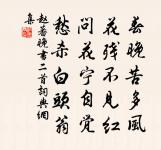 春晚苦多風
花殘不見紅
問花寧自覺
愁杀白頭翁
趙蕃晚書二首詞典網
集